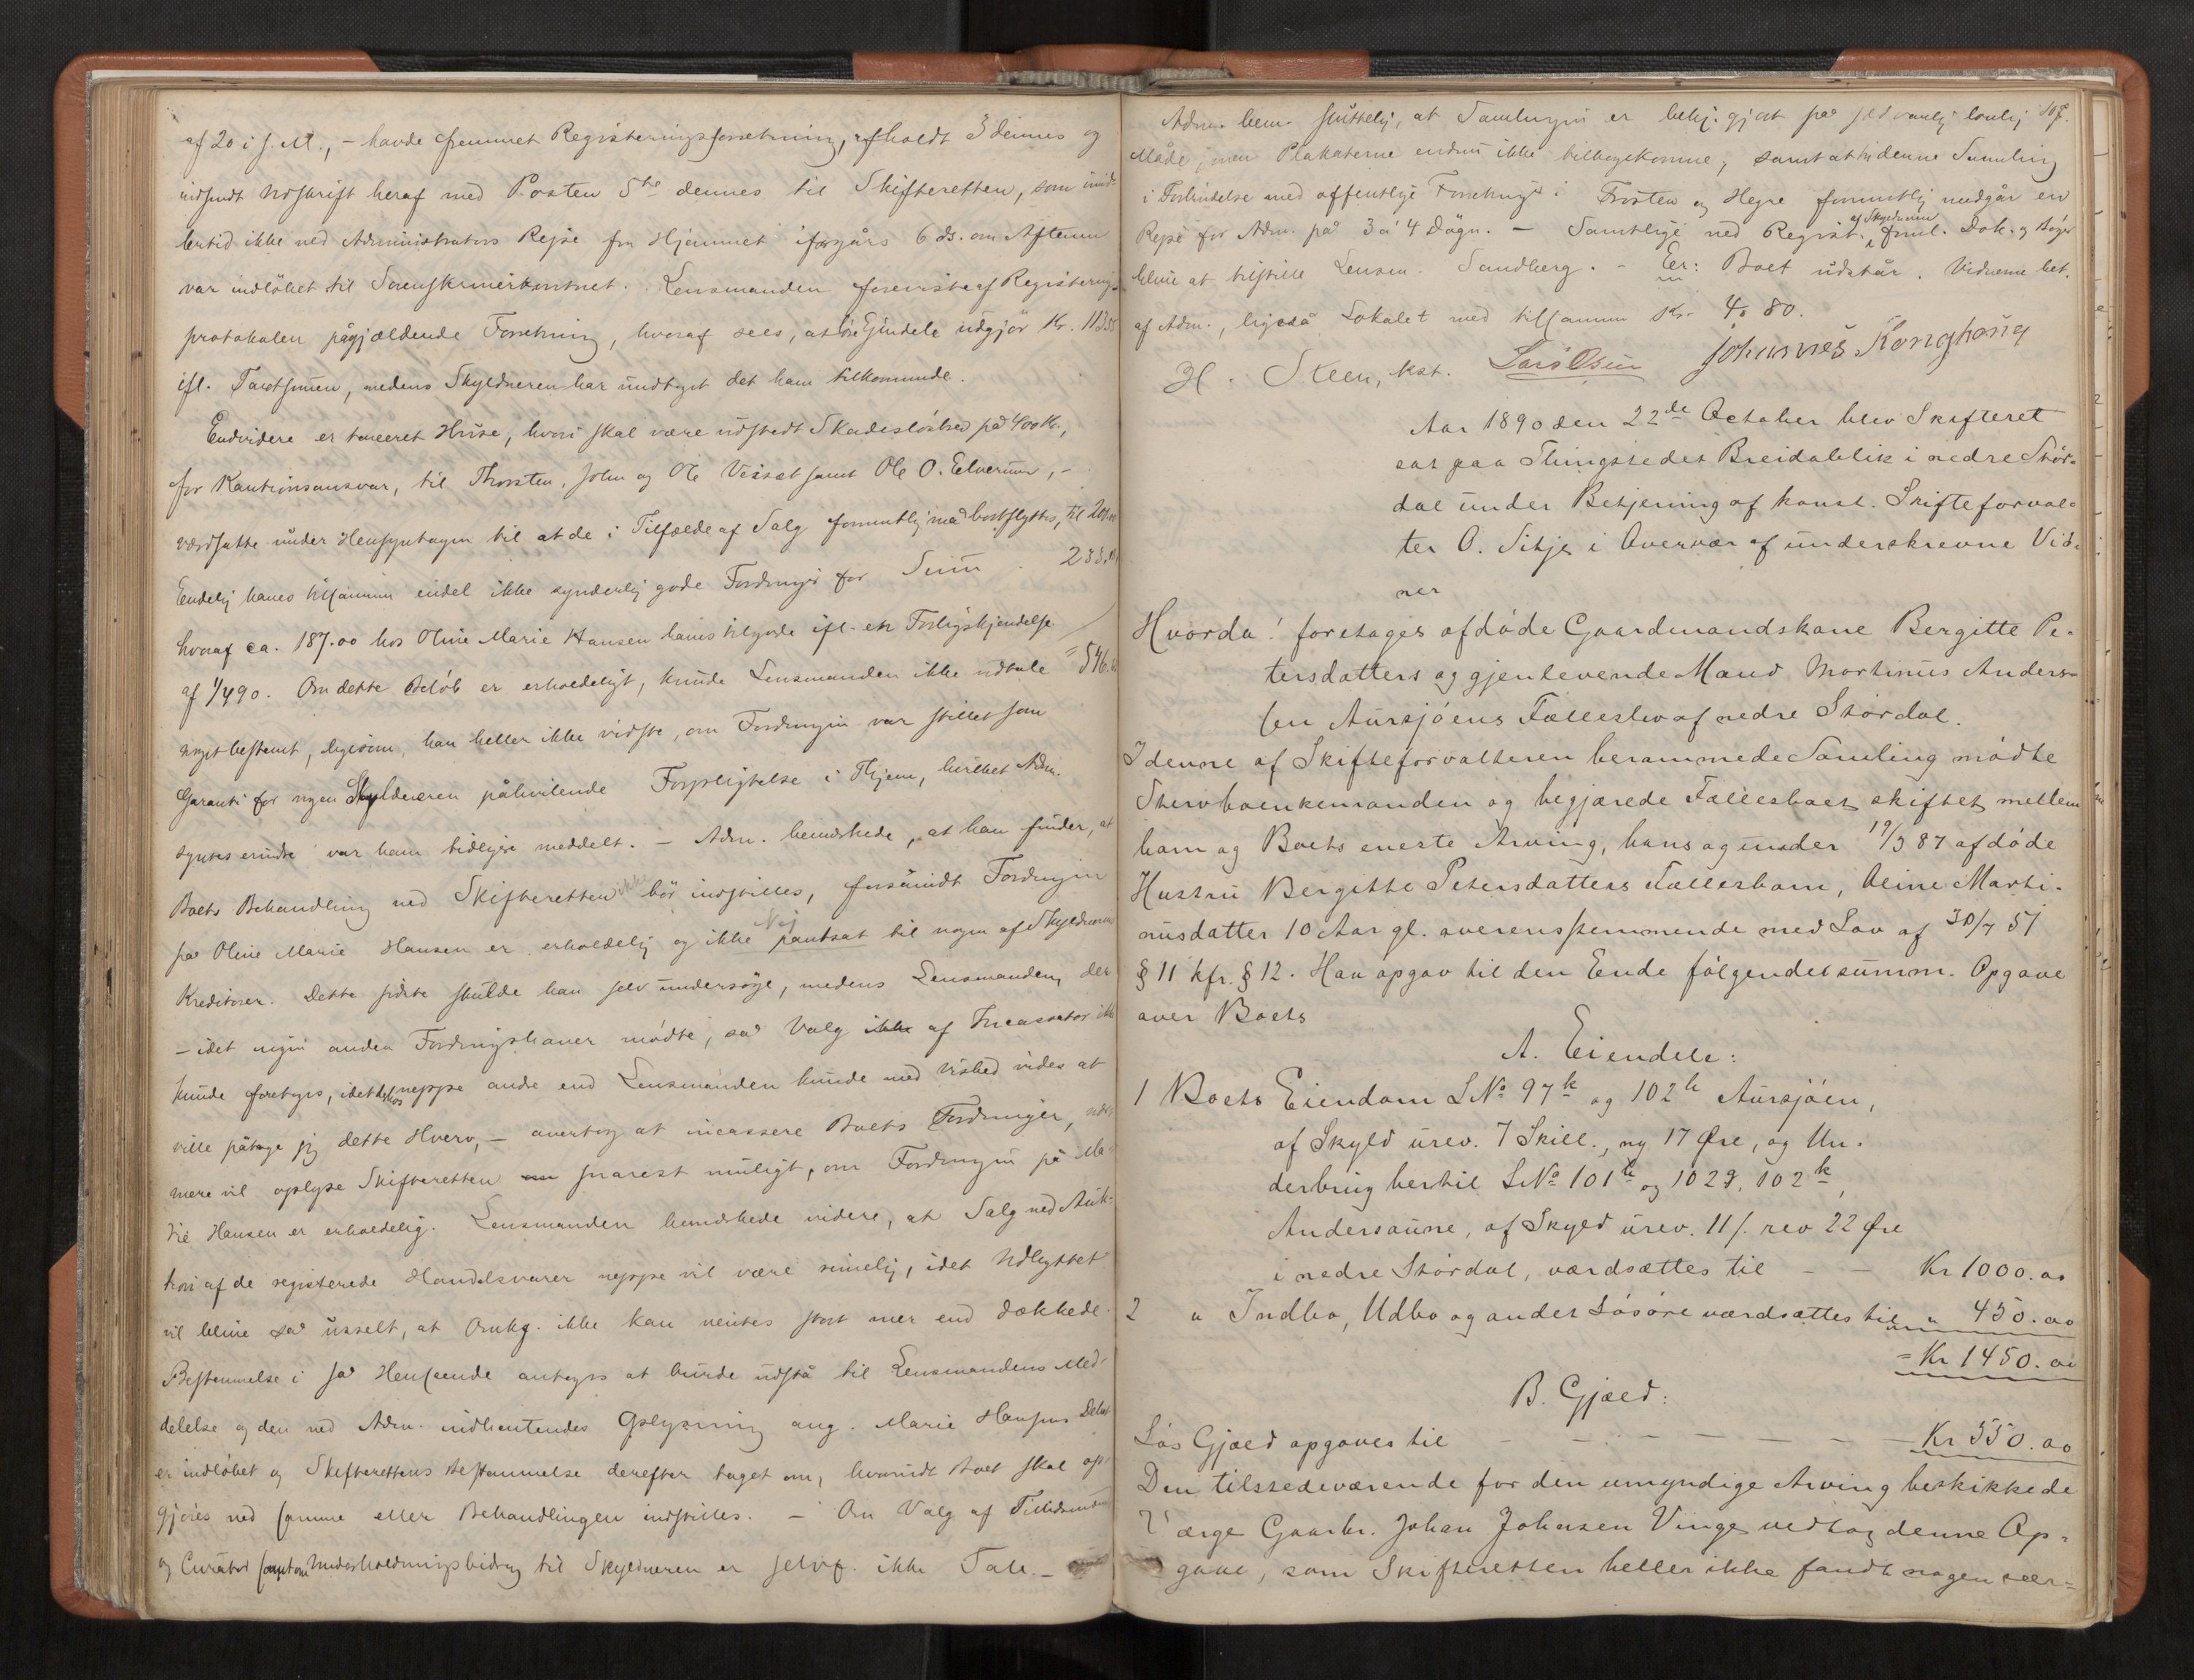 af 20 i f. M., – havde fremmet Registeringsforretning, afholdt 3 dennes og
indsendt Udskrift heraf med Posten 5te dennes til Skifteretten, som imid-
lertid ikke ved Administrators Rejse fra Hjemmet iforgårs 6 ds. om Aftenen
var indløbet til Sorenskriverkontoret. Lensmanden foreviste af Registerings-
protokollen pågjældende Forretning, hvoraf sees, at Ejendele udgjør Kr. 113
ifl. Taxtsumen, medens Skyldneren har undtaget det ham tilkommende.
Endvidere er taxeret Huse, hvori skal være udstedt Skadesløsbrev på 400 Kr.,
for Kautionsansvar, til Thorsten, John og Ole Vissat samt Ole O. Elverum, –
værdsatte under Hensyntagen til at de i Tilfælde af Salg formentlig må bortflyttes, til 200.00
Endelig haves tilsammen endel ikke synderlig gode Fordringer for Sum . 233.
hvoraf ca. 187.00 hos Oline Marie Hansen haves tilgode ifl. en Forligskjendelse
af 1/4 90. Om dette Beløb er erholdeligt, kunde Lensmanden ikke udtale = 546.
noget bestemt, ligesom han heller ikke vidste, om Fordringen var stillet som
Garanti for nogen Skyldneren påhvilende Forpligtelse i Hjem, hvilket Adm.
syntes erindre var ham tidligere meddelt. – Adm. bemærkede, at han finder, at
Boets Behandling ved Skifteretten ikke bør indstilles, forsåvidt Fordringen
på Oline Marie Hansen er erholdelig og ikke pantsat til nogen af Skyldnerens
Kreditorer. Dette sidste skulde han selv undersøge, medens Lensmanden, der
– idet ingen anden Fordringshaver mødte, så Valg ikke af Incassator ikke
kunde foretages, idet derhos neppe andre end Lensmanden kunde med Vished vides at
ville påtage sig dette Hverv, – overtog at incassere Boets Fordringer, 
mere vil oplyse Skifteretten om snarest muligt, om Fordringen på Ma-
rie Hansen er erholdelig. Lensmanden bemærkede videre, at Salg ved Auk-
tion af de registerede Handelsvarer neppe vil være rimelig, idet Udbyttet
vil blive så usselt, at Omkg. ikke kan ventes stort mer end dækkede.
Bestemmelse i så Henseende antages at burde udstå til Lensmandens Med-
delelse og den ved Adm. indhentendes Oplysning ang. Marie Hansens Debet
er indløbet og Skifterettens Bestemmelse derefter taget om, hvorvidt Boet skal op-
gjøres ved samme eller Behandlingen indstilles. – Om Valg af Tillidsmænd
og Curator samt om Underholdningsbidrag til Skyldneren er selvf. ikke Tale. –
Adm. bem. sluttelig, at Samlingen er bekj. gjort på sedvanlig lovlig
Måde, men Plakaterne endnu ikke tilbagekomne, samt at ved denne Samling
i Forbindelse med offentlige Forretninger i Frosten og Hegre formentlig medgår en
Rejse for Adm. på 3 à 4 Døgn. – Samtlige ved Regist. af Skyldneren freml. Dok. og Bøger
bliver at tilstille Lensm. Sandberg. – Eer: Boet udstår. Vidnerne bet.
af Adm., ligeså Lokalet med tilsammen Kr. 4. 80.
H. Steen, kst. Lars Olsen Johannes Konghaug
Aar 1890 den 22de October blev Skifteret
sat paa Thingstedet Breidablik i nedre Stør-
dal under Betjening af konst. Skifteforval-
ter O. Sitje i Overvær af underskrevne Vid-
ner
Hvorda! foretages afdøde Gaardmandskone Bergitte Pe-
tersdatters og gjenlevende Mand Martinus Anders-
sen Aursjøens Fællesbo af nedre Størdal.
I denne af Skifteforvalteren berammede Samling mødte
Stervboenkemanden og begjærede Fællesboet skiftet mellem
ham og Boets eneste Arving, hans og under 19/3 87 afdøde
Hustru Bergitte Petersdatters Fællesbarn, Oline Marti-
nusdatter 10 Aar gl. overensstemmende med Lov af 30/7 51
§ 11 kfr. § 12. Han opgav til den Ende følgende summ. Opgave
over Boets
A. Eiendele:
1 Boets Eiendom LNo 97k og 102h Aursjøen,
af Skyld urev. 7 Skill., ny 17 Øre, og Un-
derbrug hertil LNo 101h og 102g, 102k,
Andersaune, af Skyld urev. 11 s. rev 22 Øre
i nedre Størdal, værdsættes til – – Kr 1000.00
2 " Indbo, Udbo og andet Løsøre værdsættes til " 450.00
= Kr 1450.00
B. Gjæld:
Løs Gjæld opgaves til – – – – – – – Kr 550.00
Den tilstedeværende for den umyndige Arving beskikkede
Værge Gaardbr. Johan Johnsen Vinge vedtog denne Op-
gave, som Skifteretten heller ikke fandt nogen sær-